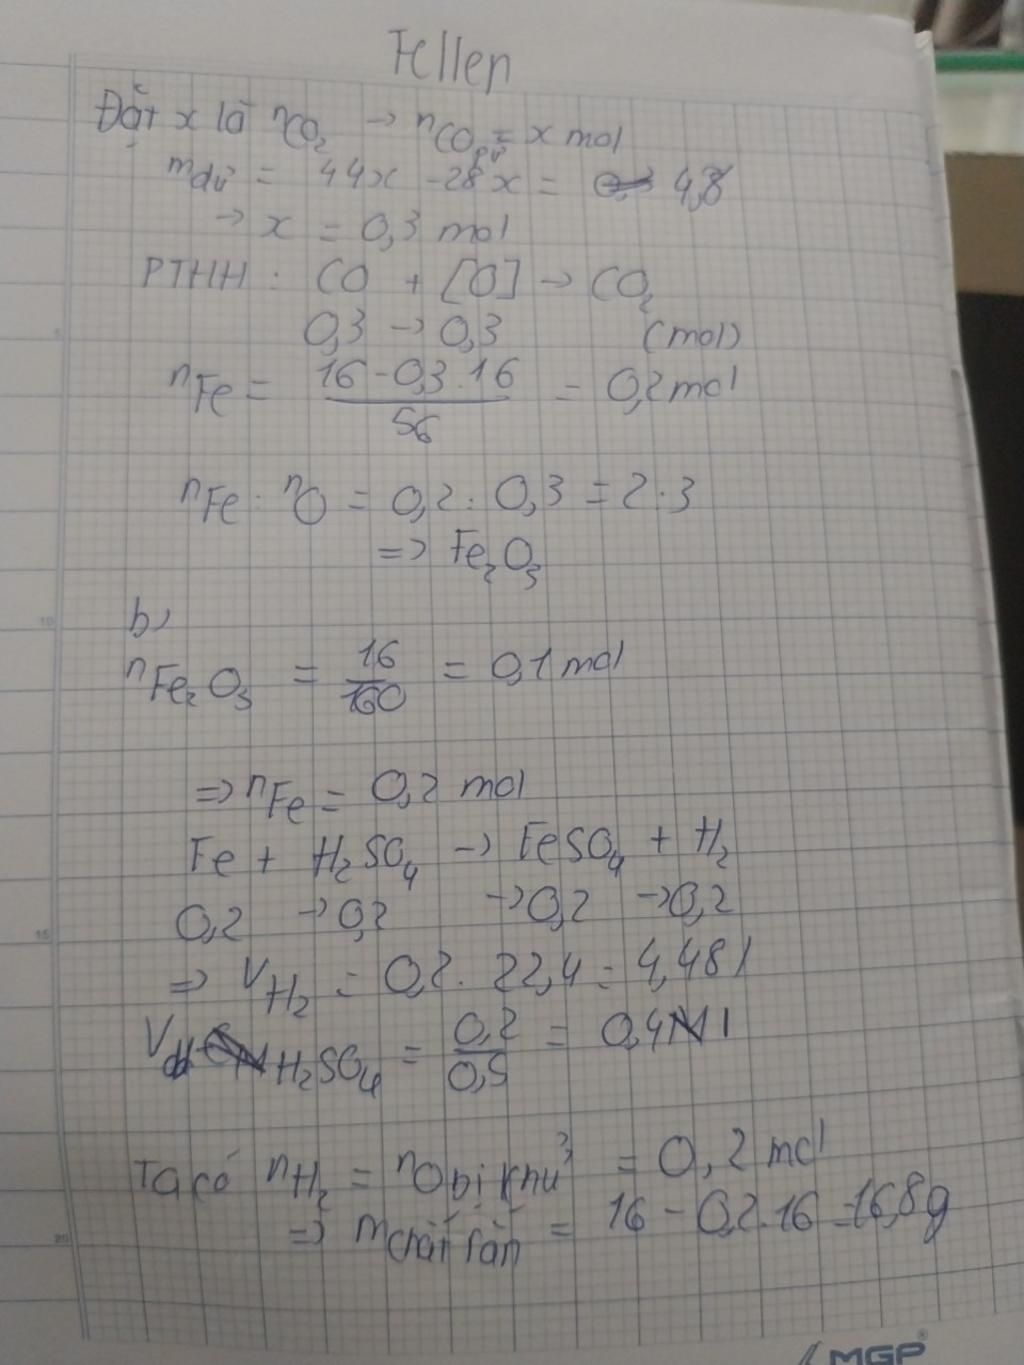 Fellen
Đặt x là nCO₂ → nCO pứ = x mol
mdư = 44x - 28x = 4,8
→ x = 0,3 mol
PTHH: CO + [O] → CO₂
0,3 → 0,3 (mol)
nFe = (16 - 0,3.16)/56 = 0,2 mol
nFe : nO = 0,2 : 0,3 = 2:3
=> Fe₂O₃
b,
nFe₂O₃ = 16/160 = 0,1 mol
=> nFe = 0,2 mol
Fe + H₂SO₄ → FeSO₄ + H₂
0,2 → 0,2 → 0,2 → 0,2
=> VH₂ = 0,2. 22,4 = 4,48 l
Vdd H₂SO₄ = 0,2/0,5 = 0,4 l
Ta có nH₂ = nO bị khử = 0,2 mol
=> mchất rắn = 16 - 0,2.16 = 16,8g
5
10
15
20
MGP